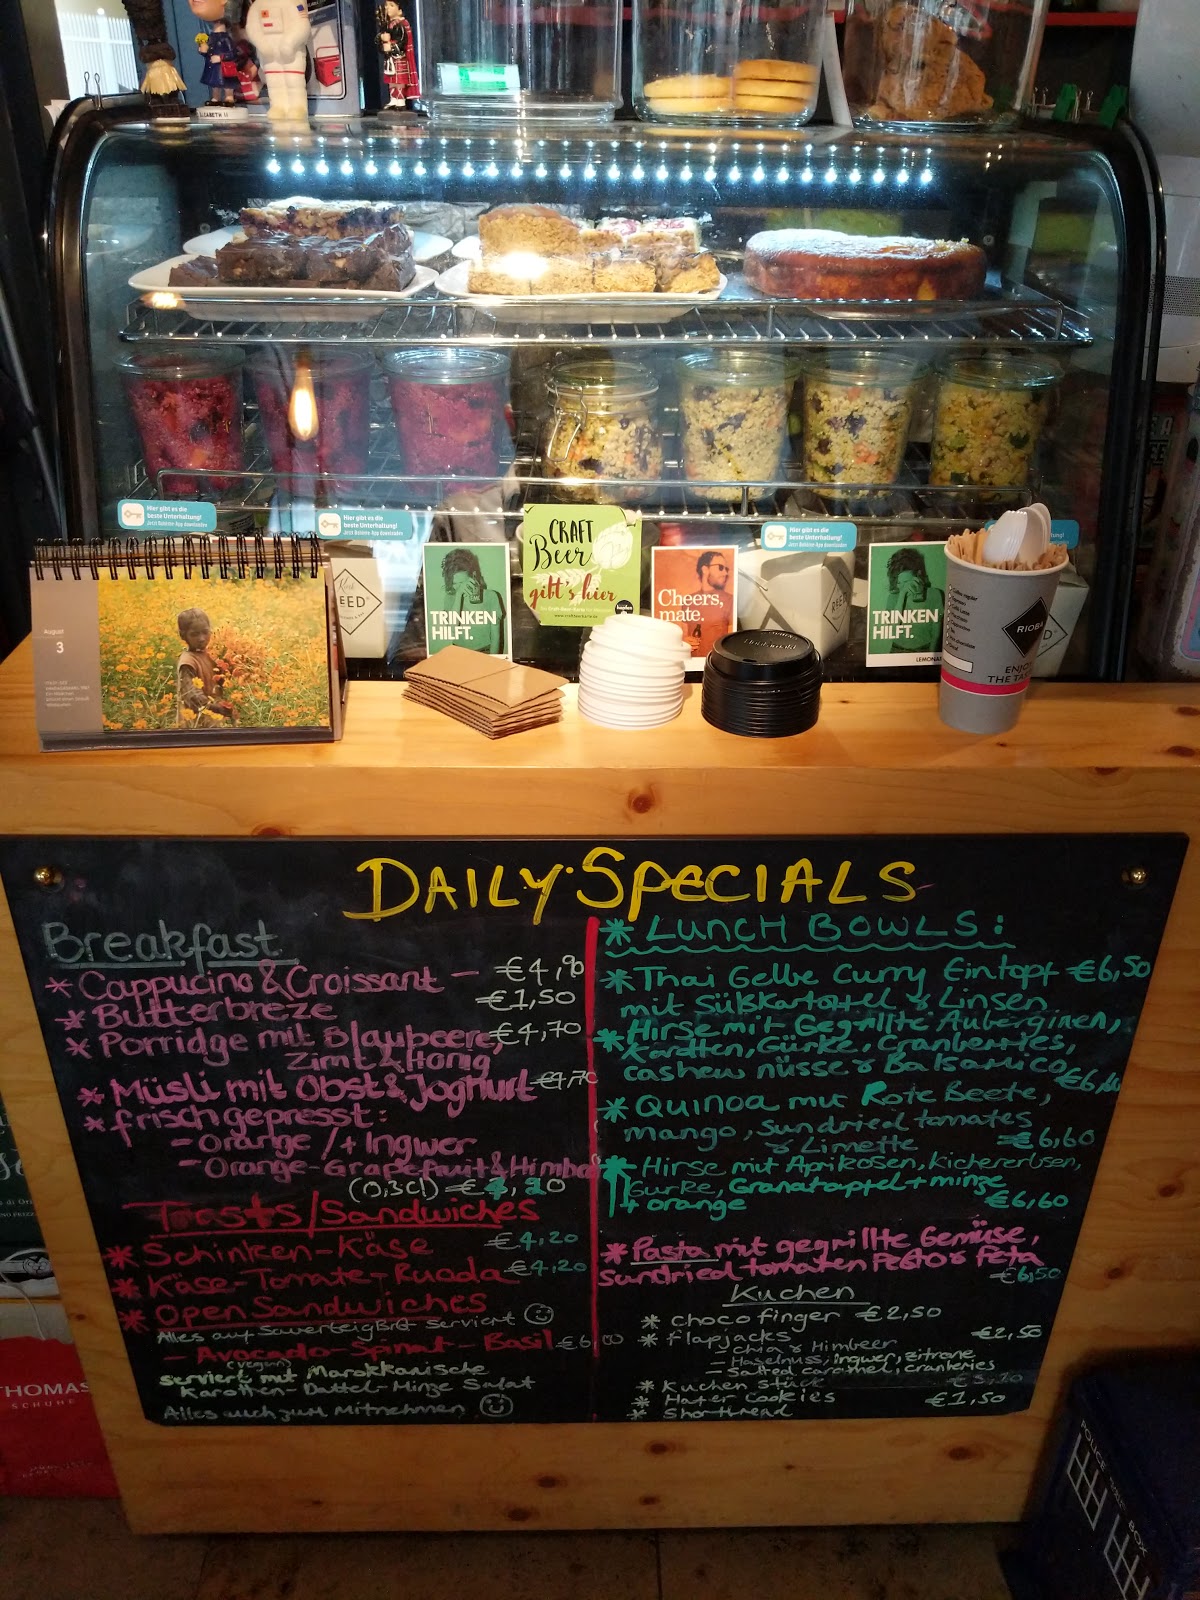 ELIZABETH II
Hier gibt es die
beste Unterhaltung!
Hier gibt es die
beste Unterhaltung!
Hier gibt es die
beste Unterhaltung!
CRAFT
Beer
gibt's hier
TRINKEN
HILFT.
Cheers,
mate.
TRINKEN
HILFT.
LEMONA
August
3
EED
RIOBA
ENJOY
THE TA
DAILY SPECIALS
Breakfast
* Cappucino & Croissant - €4,90
* Butterbreze €1,50
* Porridge mit Blaubeere, €4,70
Zimt & Honig
* Müsli mit Obst & Joghurt €4,70
* frisch gepresst:
- Orange /+ Ingwer
- Orange-Grapefruit & Himbe
(0,3cl) - €4,20
Toasts/Sandwiches
* Schinken-Käse €4,20
* Käse-Tomate-Rucola €4,20
* Open Sandwiches
Alles auf Sauerteigbrot serviert
- Avocado-Spinat-Basil €6,00
(vegan)
serviert mit Marokkanische
Karotten-Dattel-Minze Salat
Alles auch zum Mitnehmen
* LUNCH BOWLS:
* Thai Gelbe Curry Eintopf €6,50
mit Süßkartoffel & Linsen
* Hirse mit Gegrillte Auberginen,
Karotten, Gurke, Cranberries,
cashew nüsse & Balsamico
* Quinoa mit Rote Beete,
mango, sundried tomates
& Limette €6,60
* Hirse mit Aprikosen, Kichererbsen,
Gurke, Granatapfel + minze
+ orange €6,60
* Pasta mit gegrillte Gemüse,
sundried tomaten Pesto & Feta
€6,50
Kuchen
* Chocofinger €2,50
* Flapjacks €2,50
- Chia & Himbeer
- Haselnuss, Ingwer, Zitrone
- Salted caramel, cranberries
* Kuchen stück
* Hafer Cookies €1,50
* Shortbread
THOMAS
SCHUHE
POLICE
BOX